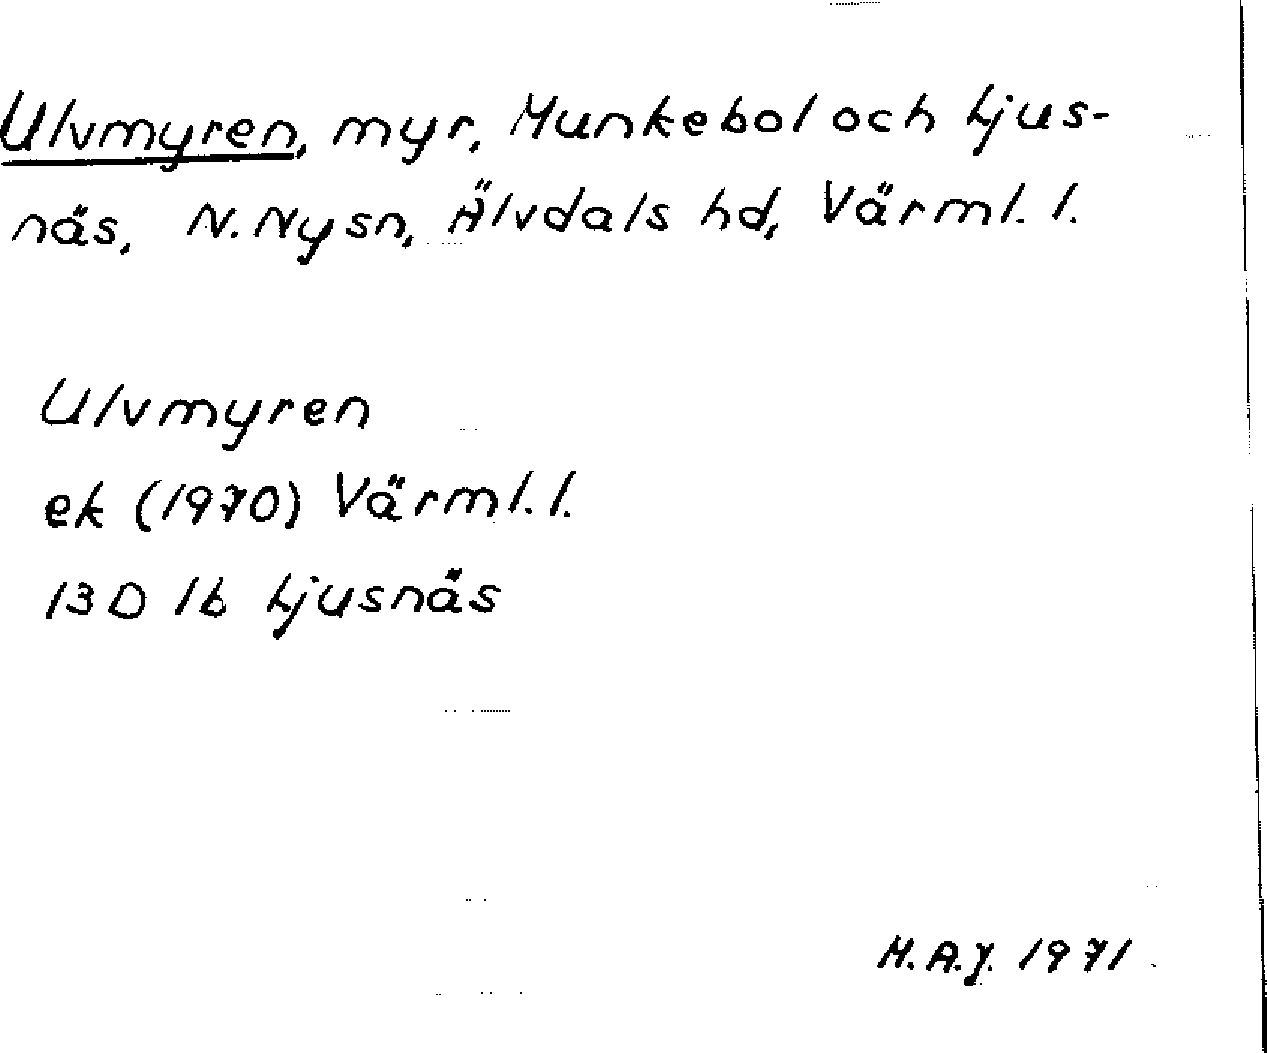 Ulvmyren, myr, Munkebol och Ljus-
näs, N. Nysn, Älvdals hd, Värml. l.
Ulvmyren
ek (1970) Värml. l.
13D 1b Ljusnäs
H.A.J. 1971